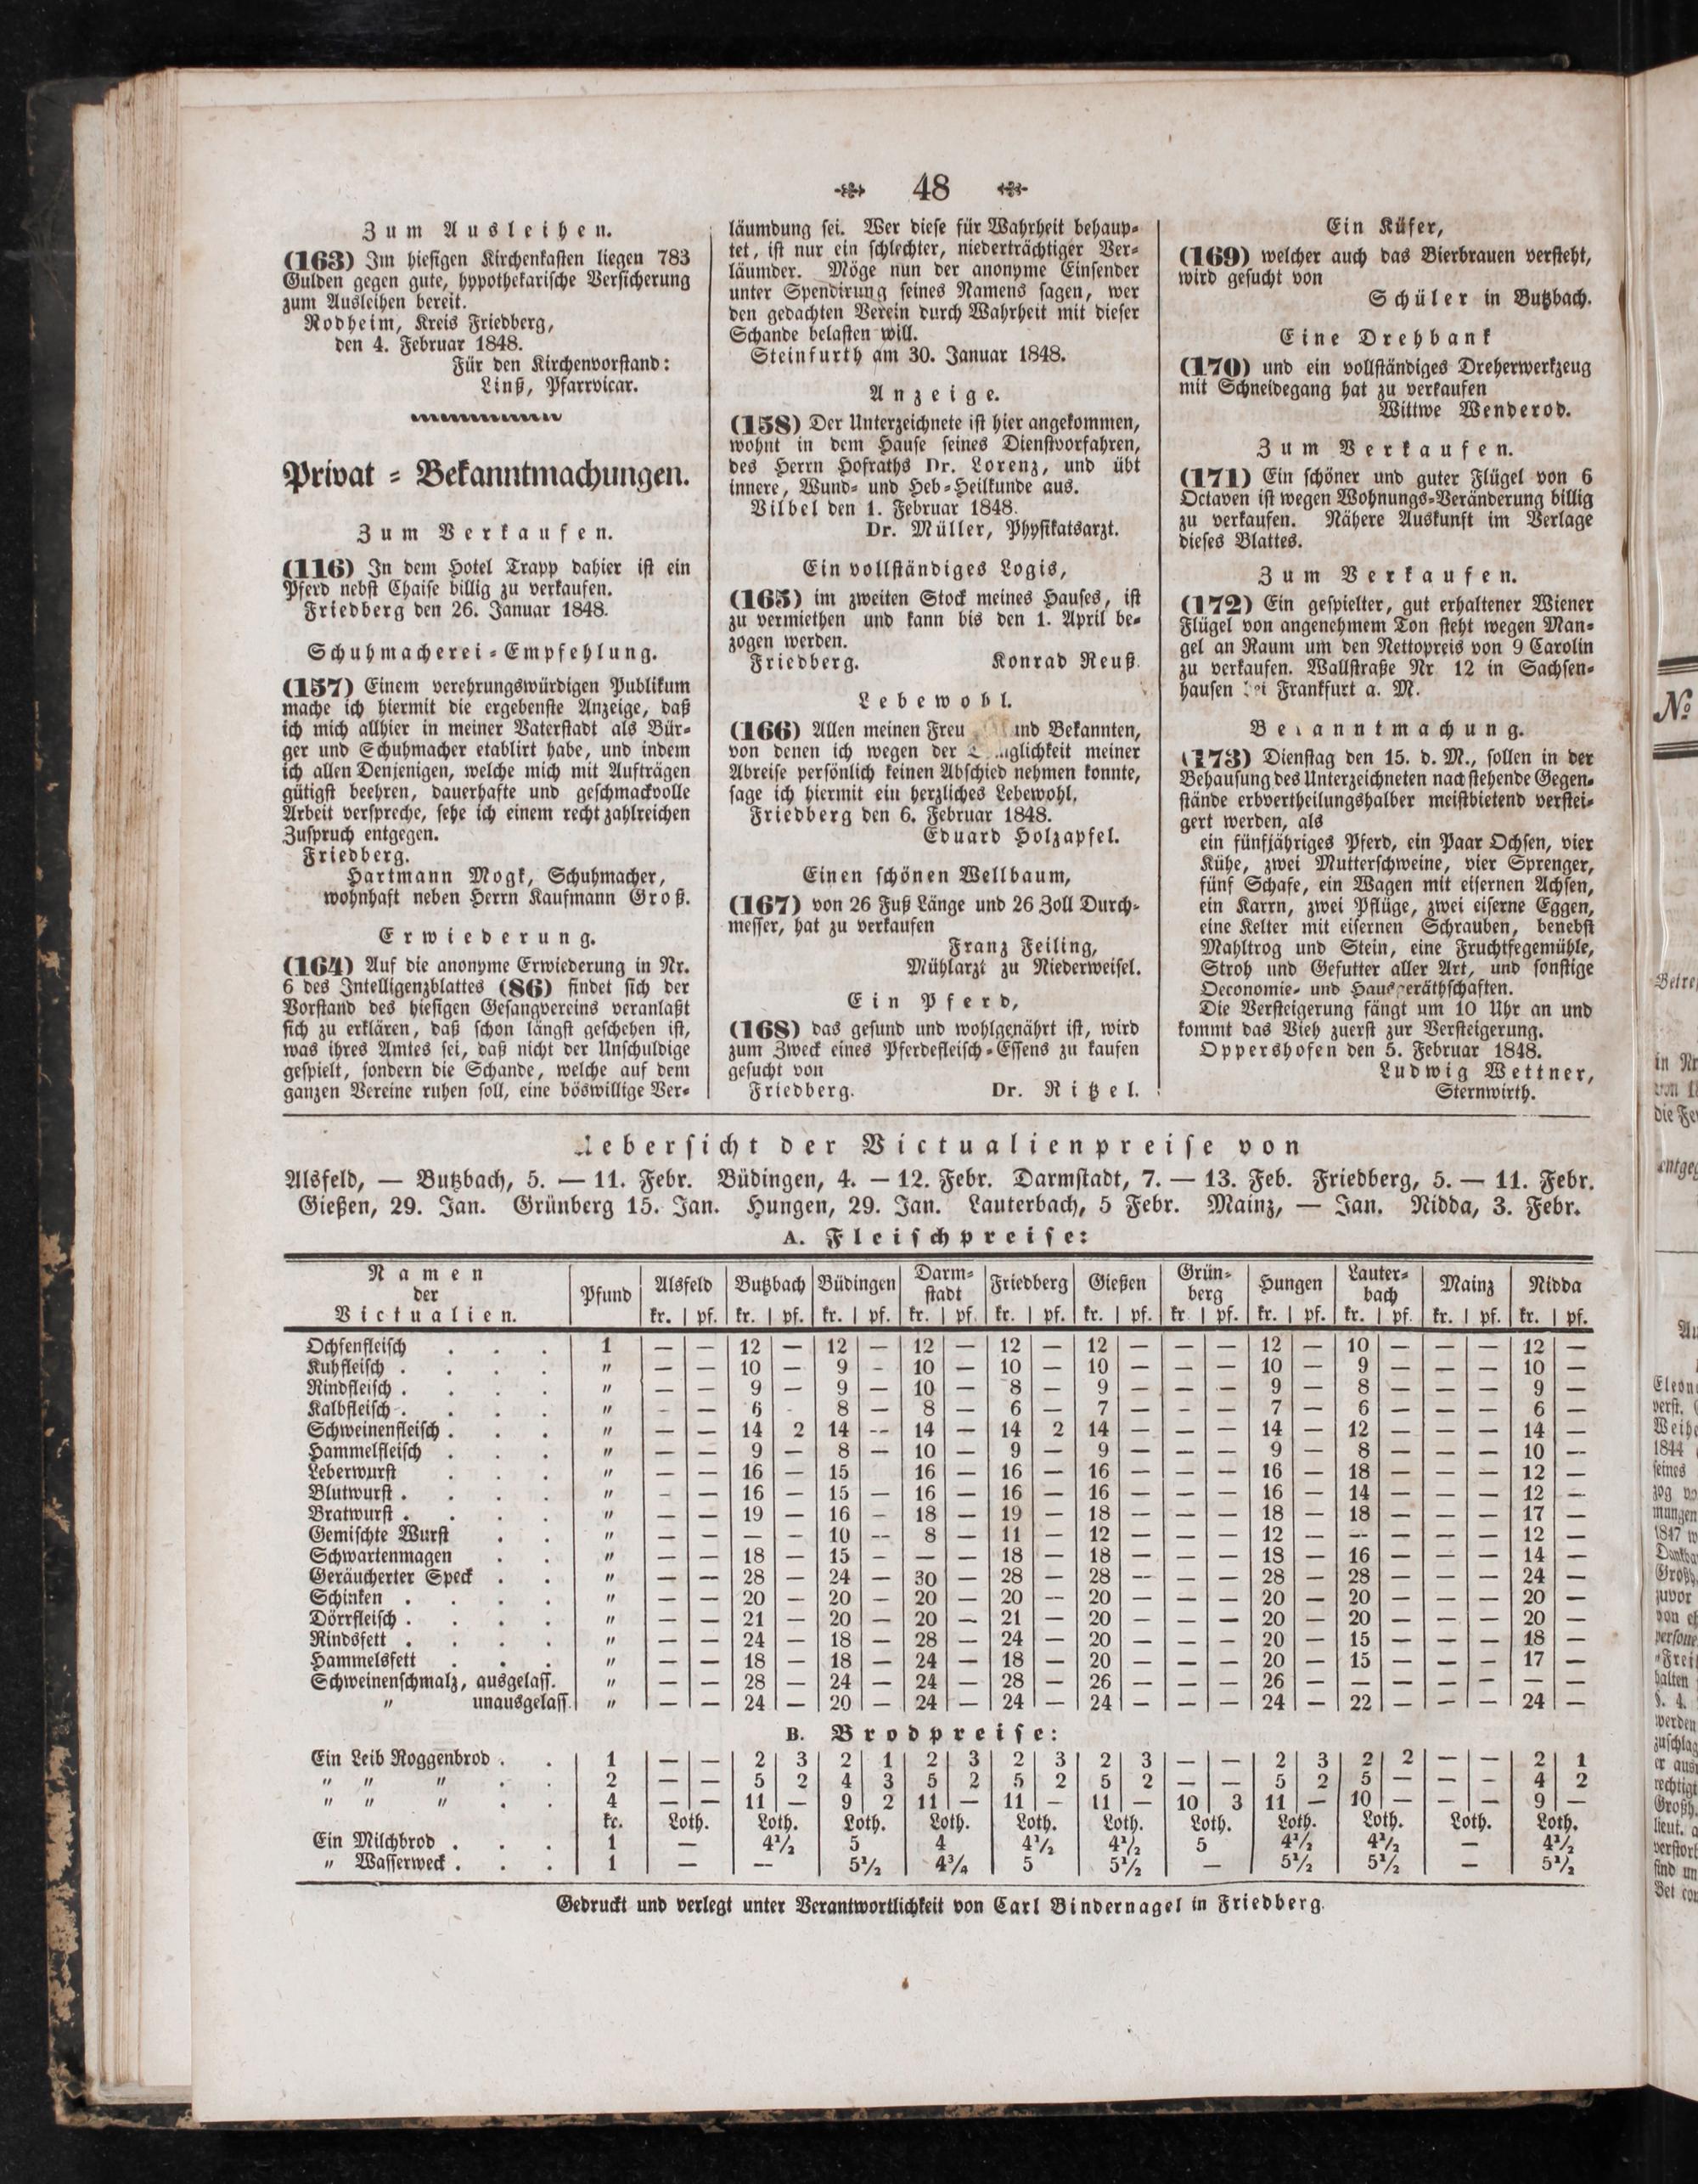 48
Zum Ausleihen.
(163) Im hiesigen Kirchenkasten liegen 783
Gulden gegen gute, hypothekarische Versicherung
zum Ausleihen bereit.
Rodheim, Kreis Friedberg,
den 4. Februar 1848.
Für den Kirchenvorstand:
Linß, Pfarrvicar.
Privat - Bekanntmachungen.
Zum Verkaufen.
(116) In dem Hotel Trapp dahier ist ein
Pferd nebst Chaise billig zu verkaufen.
Friedberg den 26. Januar 1848.
Schuhmacherei - Empfehlung.
(157) Einem verehrungswürdigen Publikum
mache ich hiermit die ergebenste Anzeige, daß
ich mich allhier in meiner Vaterstadt als Bür-
ger und Schuhmacher etablirt habe, und indem
ich allen Denjenigen, welche mich mit Aufträgen
gütigst beehren, dauerhafte und geschmackvolle
Arbeit verspreche, sehe ich einem recht zahlreichen
Zuspruch entgegen.
Friedberg.
Hartmann Mogk, Schuhmacher,
wohnhaft neben Herrn Kaufmann Groß.
Erwiederung.
(164) Auf die anonyme Erwiederung in Nr.
6 des Intelligenzblattes (86) findet sich der
Vorstand des hiesigen Gesangvereins veranlaßt
sich zu erklären, daß schon längst geschehen ist,
was ihres Amtes sei, daß nicht der Unschuldige
gespielt, sondern die Schande, welche auf dem
ganzen Vereine ruhen soll, eine böswillige Ver-
läumdung sei. Wer diese für Wahrheit behaup-
tet, ist nur ein schlechter, niederträchtiger Ver-
läumder. Möge nun der anonyme Einsender
unter Spendirung seines Namens sagen, wer
den gedachten Verein durch Wahrheit mit dieser
Schande belasten will.
Steinfurth am 30. Januar 1848.
Anzeige.
(158) Der Unterzeichnete ist hier angekommen,
wohnt in dem Hause seines Dienstvorfahren,
des Herrn Hofraths Dr. Lorenz, und übt
innere, Wund- und Heb-Heilkunde aus.
Vilbel den 1. Februar 1848.
Dr. Müller, Physikatsarzt.
Ein vollständiges Logis,
(165) im zweiten Stock meines Hauses, ist
zu vermiethen und kann bis den 1. April be-
zogen werden.
Friedberg. Konrad Reuß.
Lebewohl.
(166) Allen meinen Freu und Bekannten,
von denen ich wegen der meiner
Abreise persönlich keinen Abschied nehmen konnte,
sage ich hiermit ein herzliches Lebewohl,
Friedberg den 6. Februar 1848.
Eduard Holzapfel.
Einen schönen Wellbaum,
(167) von 26 Fuß Länge und 26 Zoll Durch-
messer, hat zu verkaufen
Franz Feiling,
Mühlarzt zu Niederweisel.
Ein Pferd,
(168) das gesund und wohlgenährt ist, wird
zum Zweck eines Pferdefleisch-Essens zu kaufen
gesucht von
Friedberg. Dr. Ritzel.
Ein Küfer,
(169) welcher auch das Bierbrauen versteht,
wird gesucht von
Schüler in Butzbach.
Eine Drehbank
(170) und ein vollständiges Dreherwerkzeug
mit Schneidegang hat zu verkaufen
Wittwe Wenderod.
Zum Verkaufen.
(171) Ein schöner und guter Flügel von 6
Octaven ist wegen Wohnungs-Veränderung billig
zu verkaufen. Nähere Auskunft im Verlage
dieses Blattes.
Zum Verkaufen.
(172) Ein gespielter, gut erhaltener Wiener
Flügel von angenehmem Ton steht wegen Man-
gel an Raum um den Nettopreis von 9 Carolin
zu verkaufen. Wallstraße Nr 12 in Sachsen-
hausen bei Frankfurt a. M.
Bekanntmachung.
(173) Dienstag den 15. d. M., sollen in der
Behausung des Unterzeichneten nachstehende Gegen-
stände erbvertheilungshalber meistbietend verstei-
gert werden, als
ein fünfjähriges Pferd, ein Paar Ochsen, vier
Kühe, zwei Mutterschweine, vier Sprenger,
fünf Schafe, ein Wagen mit eisernen Achsen,
ein Karrn, zwei Pflüge, zwei eiserne Eggen,
eine Kelter mit eisernen Schrauben, benebst
Mahltrog und Stein, eine Fruchtfegemühle,
Stroh und Gefutter aller Art, und sonstige
Oeconomie- und Hausgeräthschaften.
Die Versteigerung fängt um 10 Uhr an und
kommt das Vieh zuerst zur Versteigerung.
Oppershofen den 5. Februar 1848.
Ludwig Wettner,
Sternwirth.
Uebersicht der Victualienpreise von
Alsfeld, — Butzbach, 5. — 11. Febr. Büdingen, 4. — 12. Febr. Darmstadt, 7. — 13. Feb. Friedberg, 5. — 11. Febr.
Gießen, 29. Jan. Grünberg 15. Jan. Hungen, 29. Jan. Lauterbach, 5 Febr. Mainz, — Jan. Nidda, 3. Febr.
A. Fleischpreise:
Namen der Victualien. | Pfund | Alsfeld | Butzbach | Büdingen | Darmstadt | Friedberg | Gießen | Grünberg | Hungen | Lauterbach | Mainz | Nidda
kr. | pf. | kr. | pf. | kr. | pf. | kr. | pf. | kr. | pf. | kr. | pf. | kr. | pf. | kr. | pf. | kr. | pf. | kr. | pf. | kr. | pf.
Ochsenfleisch . . . 1 — — 12 — 12 — 12 — 12 — 12 — — — 12 — 10 — — — 12 —
Kuhfleisch . . . . " — — 10 — 9 - 10 — 10 — 10 — — — 10 — 9 — — — 10 —
Rindfleisch . . . . " — — 9 — 9 — 10 — 8 — 9 — — — 9 — 8 — — — 9 —
Kalbfleisch . . . . " - — 6 - 8 — 8 — 6 — 7 — — — 7 — 6 — — — 6 —
Schweinenfleisch . . . " — — 14 2 14 -- 14 — 14 2 14 — — — 14 — 12 — — — 14 —
Hammelfleisch . . . " — — 9 — 8 — 10 — 9 — 9 — — — 9 — 8 — — — 10 —
Leberwurst . . . " — — 16 — 15 16 — 16 — 16 — — — 16 — 18 — — — 12 —
Blutwurst . . . . " - — 16 — 15 — 16 — 16 — 16 — — — 16 — 14 — — — 12 —
Bratwurst . . . . " — — 19 — 16 - 18 — 19 — 18 — — — 18 — 18 — — — 17 —
Gemischte Wurst . . " — — — — 10 -- 8 — 11 — 12 — — — 12 — -- — — — 12 —
Schwartenmagen . . " — — 18 — 15 - — — 18 — 18 — — — 18 — 16 — — — 14 —
Geräucherter Speck . . " — — 28 — 24 — 30 — 28 — 28 -- — — 28 — 28 — — — 24 —
Schinken . . . . " — — 20 — 20 — 20 — 20 -- 20 — — — 20 — 20 — — — 20 —
Dörrfleisch . . . . " — — 21 — 20 — 20 — 21 — 20 — — — 20 — 20 — — — 20 —
Rindsfett . . . . " — — 24 — 18 — 28 — 24 — 20 — — — 20 — 15 — — — 18 —
Hammelsfett . . . " — — 18 — 18 — 24 — 18 — 20 — — — 20 — 15 — — — 17 —
Schweinenschmalz, ausgelass. " — — 28 — 24 — 24 — 28 — 26 — — — 26 — — — — — — —
" unausgelass. " — — 24 — 20 — 24 — 24 — 24 — — — 24 — 22 — — — 24 —
B. Brodpreise:
Ein Leib Roggenbrod . . 1 — — 2 3 2 1 2 3 2 3 2 3 — — 2 3 2 2 — — 2 1
" " " . . 2 — — 5 2 4 3 5 2 5 2 5 2 — — 5 2 5 — — - 4 2
" " " . . 4 — — 11 — 9 2 11 — 11 — 11 — 10 3 11 — 10 — — — 9 —
kr. Loth. Loth. Loth. Loth. Loth. Loth. Loth. Loth. Loth. Loth. Loth.
Ein Milchbrod . . . 1 — 4½ 5 4 4½ 4½ 5 4½ 4½ — 4½
" Wasserweck . . . 1 — -- 5½ 4¾ 5 5½ — 5½ 5½ — 5½
Gedruckt und verlegt unter Verantwortlichkeit von Carl Bindernagel in Friedberg.